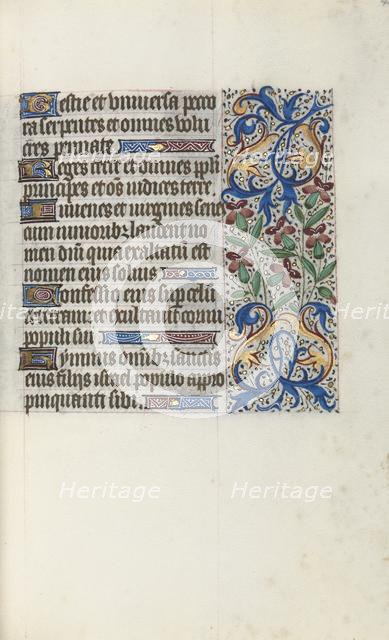 Bestie et universa peco
ra serpentes et omnes volu
cres pennate
Reges terre et omnes pli
principes et oes iudices terre.
Iuvenes et virgines sen
cum iunioribz laudent no
men dni quia exaltatu est
nomen eius solius
Confessio eius sup celu
et terram et exaltavit cornu
populi sui
Hymnus omibz sanctis
eius filiis israel populo appro
pinquanti sibi.
Heritage
Heritage
Heritage
Heritage
Heritage
Heritage